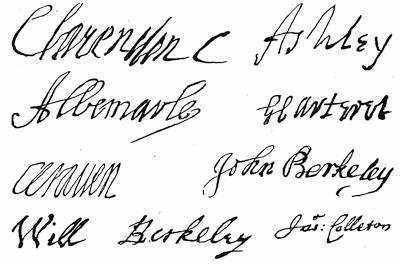 Clarendon C Ashley
Albemarle G Carteret
Craven John Berkeley
Will Berkeley Jos: Colleton